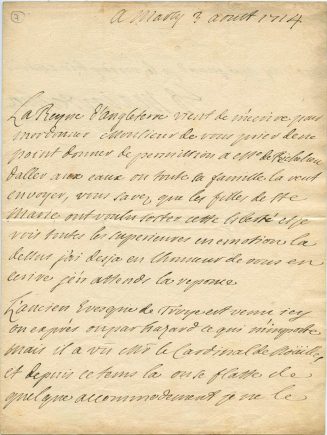 7
A Marly 3 aoust 1714
La Reyne d'Angleterre vient de m'escrire pour
m'ordonner Monsieur de vous prier de ne
point donner de permission a Me de Richelieu
d'aller aux eaux ou toute la famille la veut
envoyer, vous savez que les filles de Ste
Marie ont voulu oster cette liberté et je
vois toutes les superieures en emotion la
dessus j'ai desja eu l'honneur de vous en
escrire j'en attends la reponse
L'ancien Evesque de Troye est venu icy
ou exprès ou par hazard ce qui m'importe
mais il a vu Mr le Cardinal de
et depuis ce tems la on se flatte de
quelque accommodement je ne le